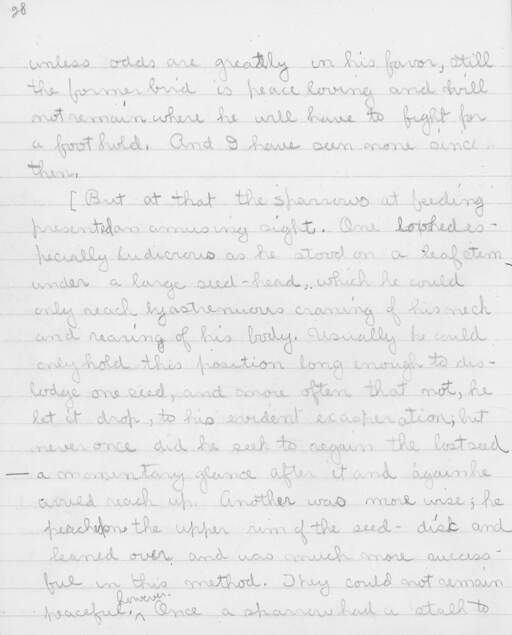 28
unless odds are greatly in his favor, still
the former bird is peace loving and will
not remain where he will have to fight for
a foothold. And I have seen none since
then.
[ But at that the sparrows at feeding
presented an amusing sight. One looked es-
pecially ludicrous as he stood on a leaf stem
under a large seed-head, which he could
only reach by a strenuous craning of his neck
and rearing of his body. Usually he could
only hold this position long enough to dis-
lodge one seed, and more often that not, he
let it drop, to his evident exasperation; but
never once did he seek to regain the lost seed
— a momentary glance after it and again he
would reach up. Another was more wise; he
perched on the upper rim of the seed-disk and
leaned over and was much more success-
ful in this method. They could not remain
peaceful, however. Once a sparrow had a stalk to